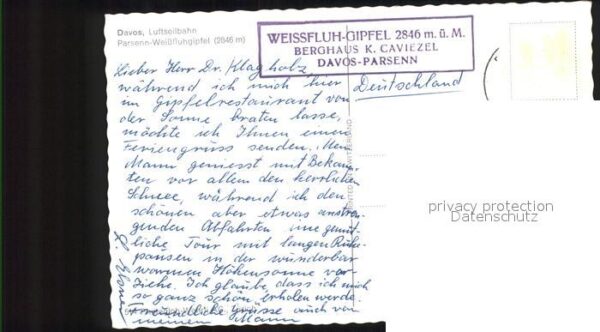 Davos, Luftseilbahn
Parsenn-Weißfluhgipfel (2846 m)
WEISSFLUH-GIPFEL 2846 m. ü. M.
BERGHAUS K. CAVIEZEL
DAVOS-PARSENN
Lieber Herr Dr. Klagholz
während ich mich hier
im Gipfelrestaurant von
der Sonne braten lasse,
möchte ich Ihnen einen
Feriengruss senden. Mein
Mann geniesst mit Bekann-
ten vor allem den herrlichen
Schnee, während ich den
schönen aber etwas anstren-
genden Abfahrten eine gemüt-
liche Tour mit langen Ruhe-
pausen in der wunderbar
warmen Höhensonne vor-
ziehe. Ich glaube, dass ich mich
so ganz schön erholen werde.
Freundliche Grüsse auch von
meinem Mann
Deutschland
privacy protection
Datenschutz